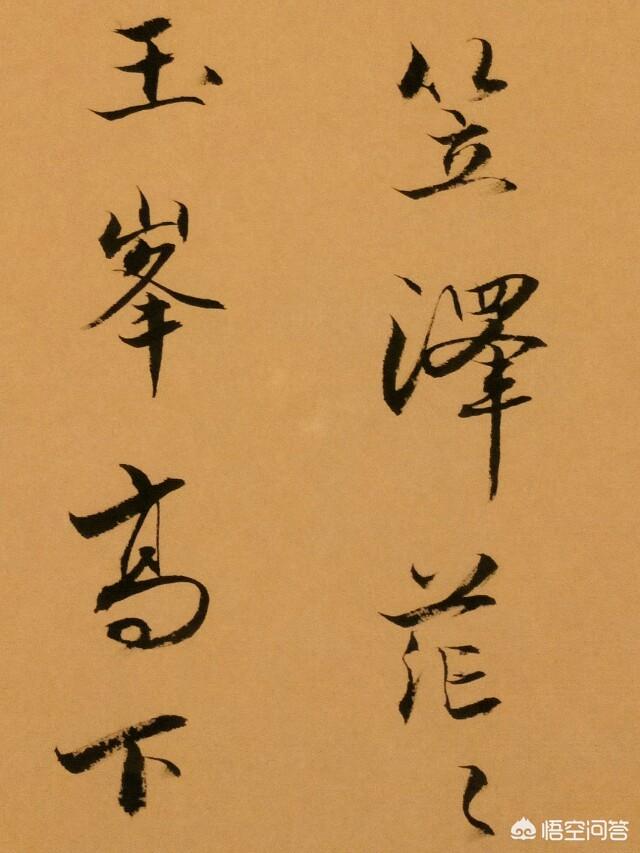 笠澤茫〻
玉峯高下
悟空问答